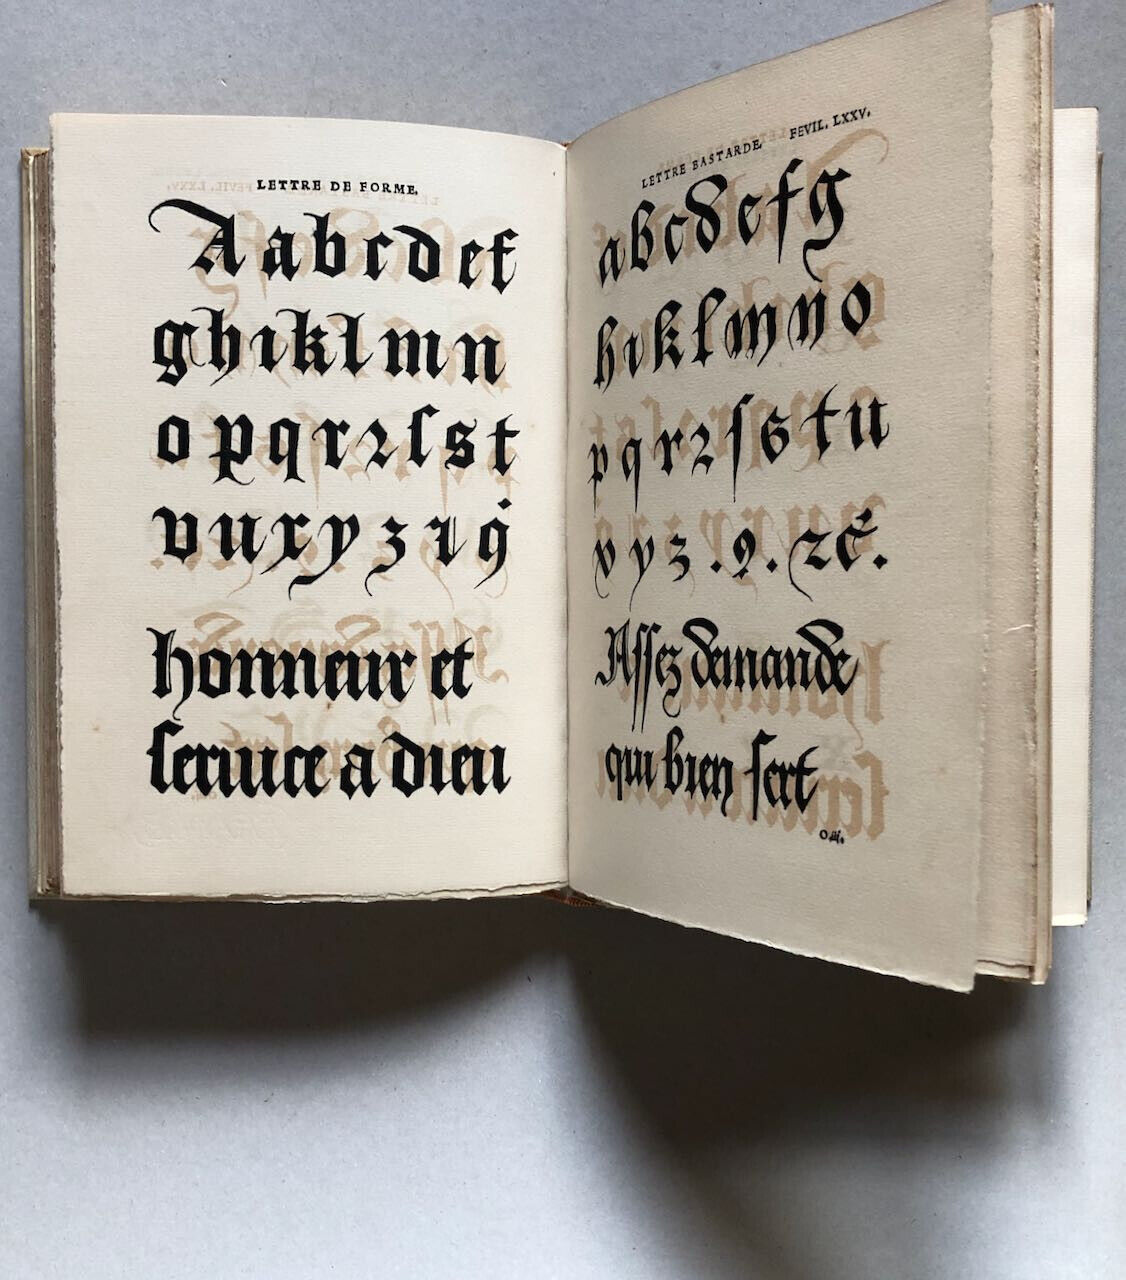 LETTRE DE FORME.
A a b c d e f
g h i k l m n
o p q r ꝛ ſ s t
v u x y z
honneur et
ſeruice a dieu
LETTRE BASTARDE. FEVIL. LXXV.
a b c d e f g
h i k l m n o
p q r ꝛ ſ s t u
v y z . 9 . ꝛč.
Aſſez demande
qui bien ſert